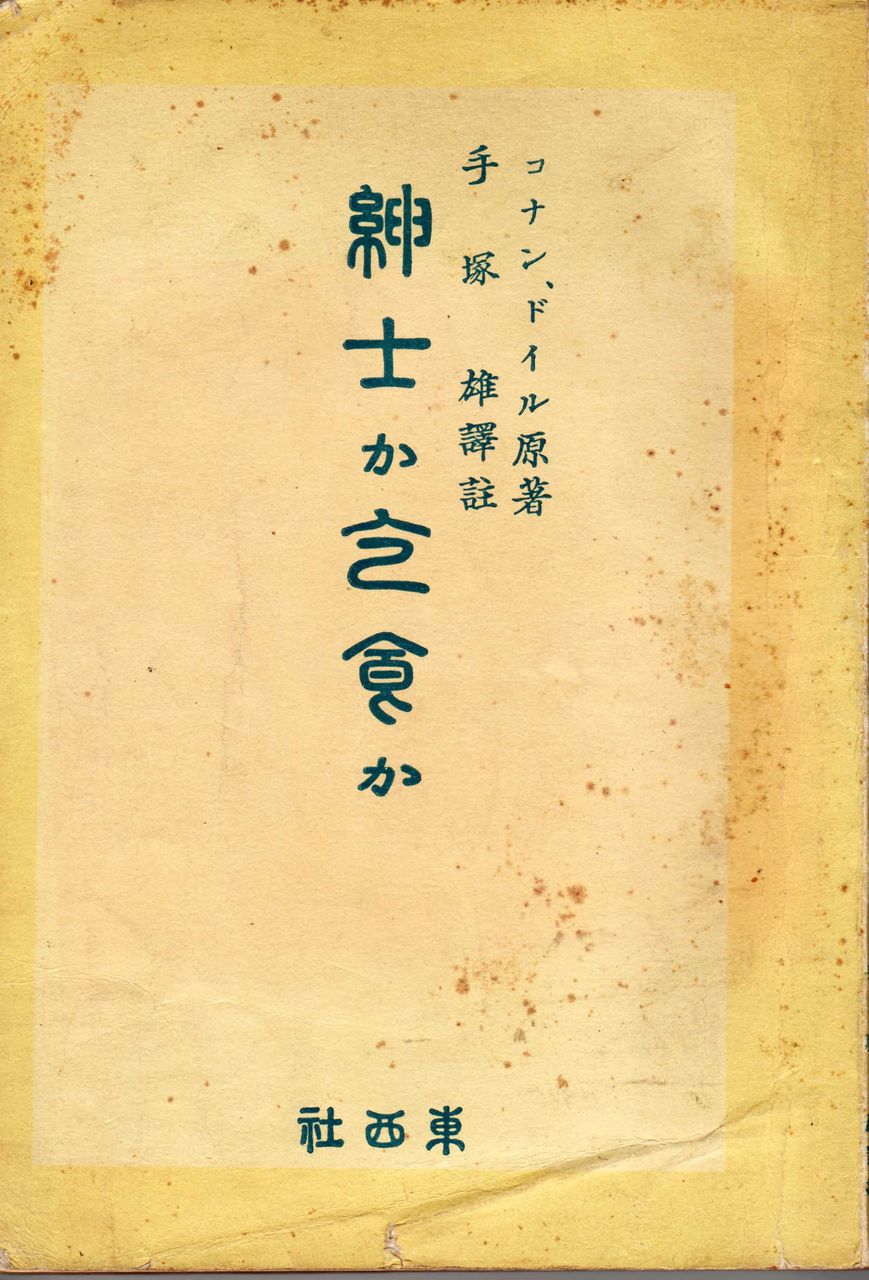 コナン、ドイル原著
手塚雄譯註
紳士か乞食か
東西社